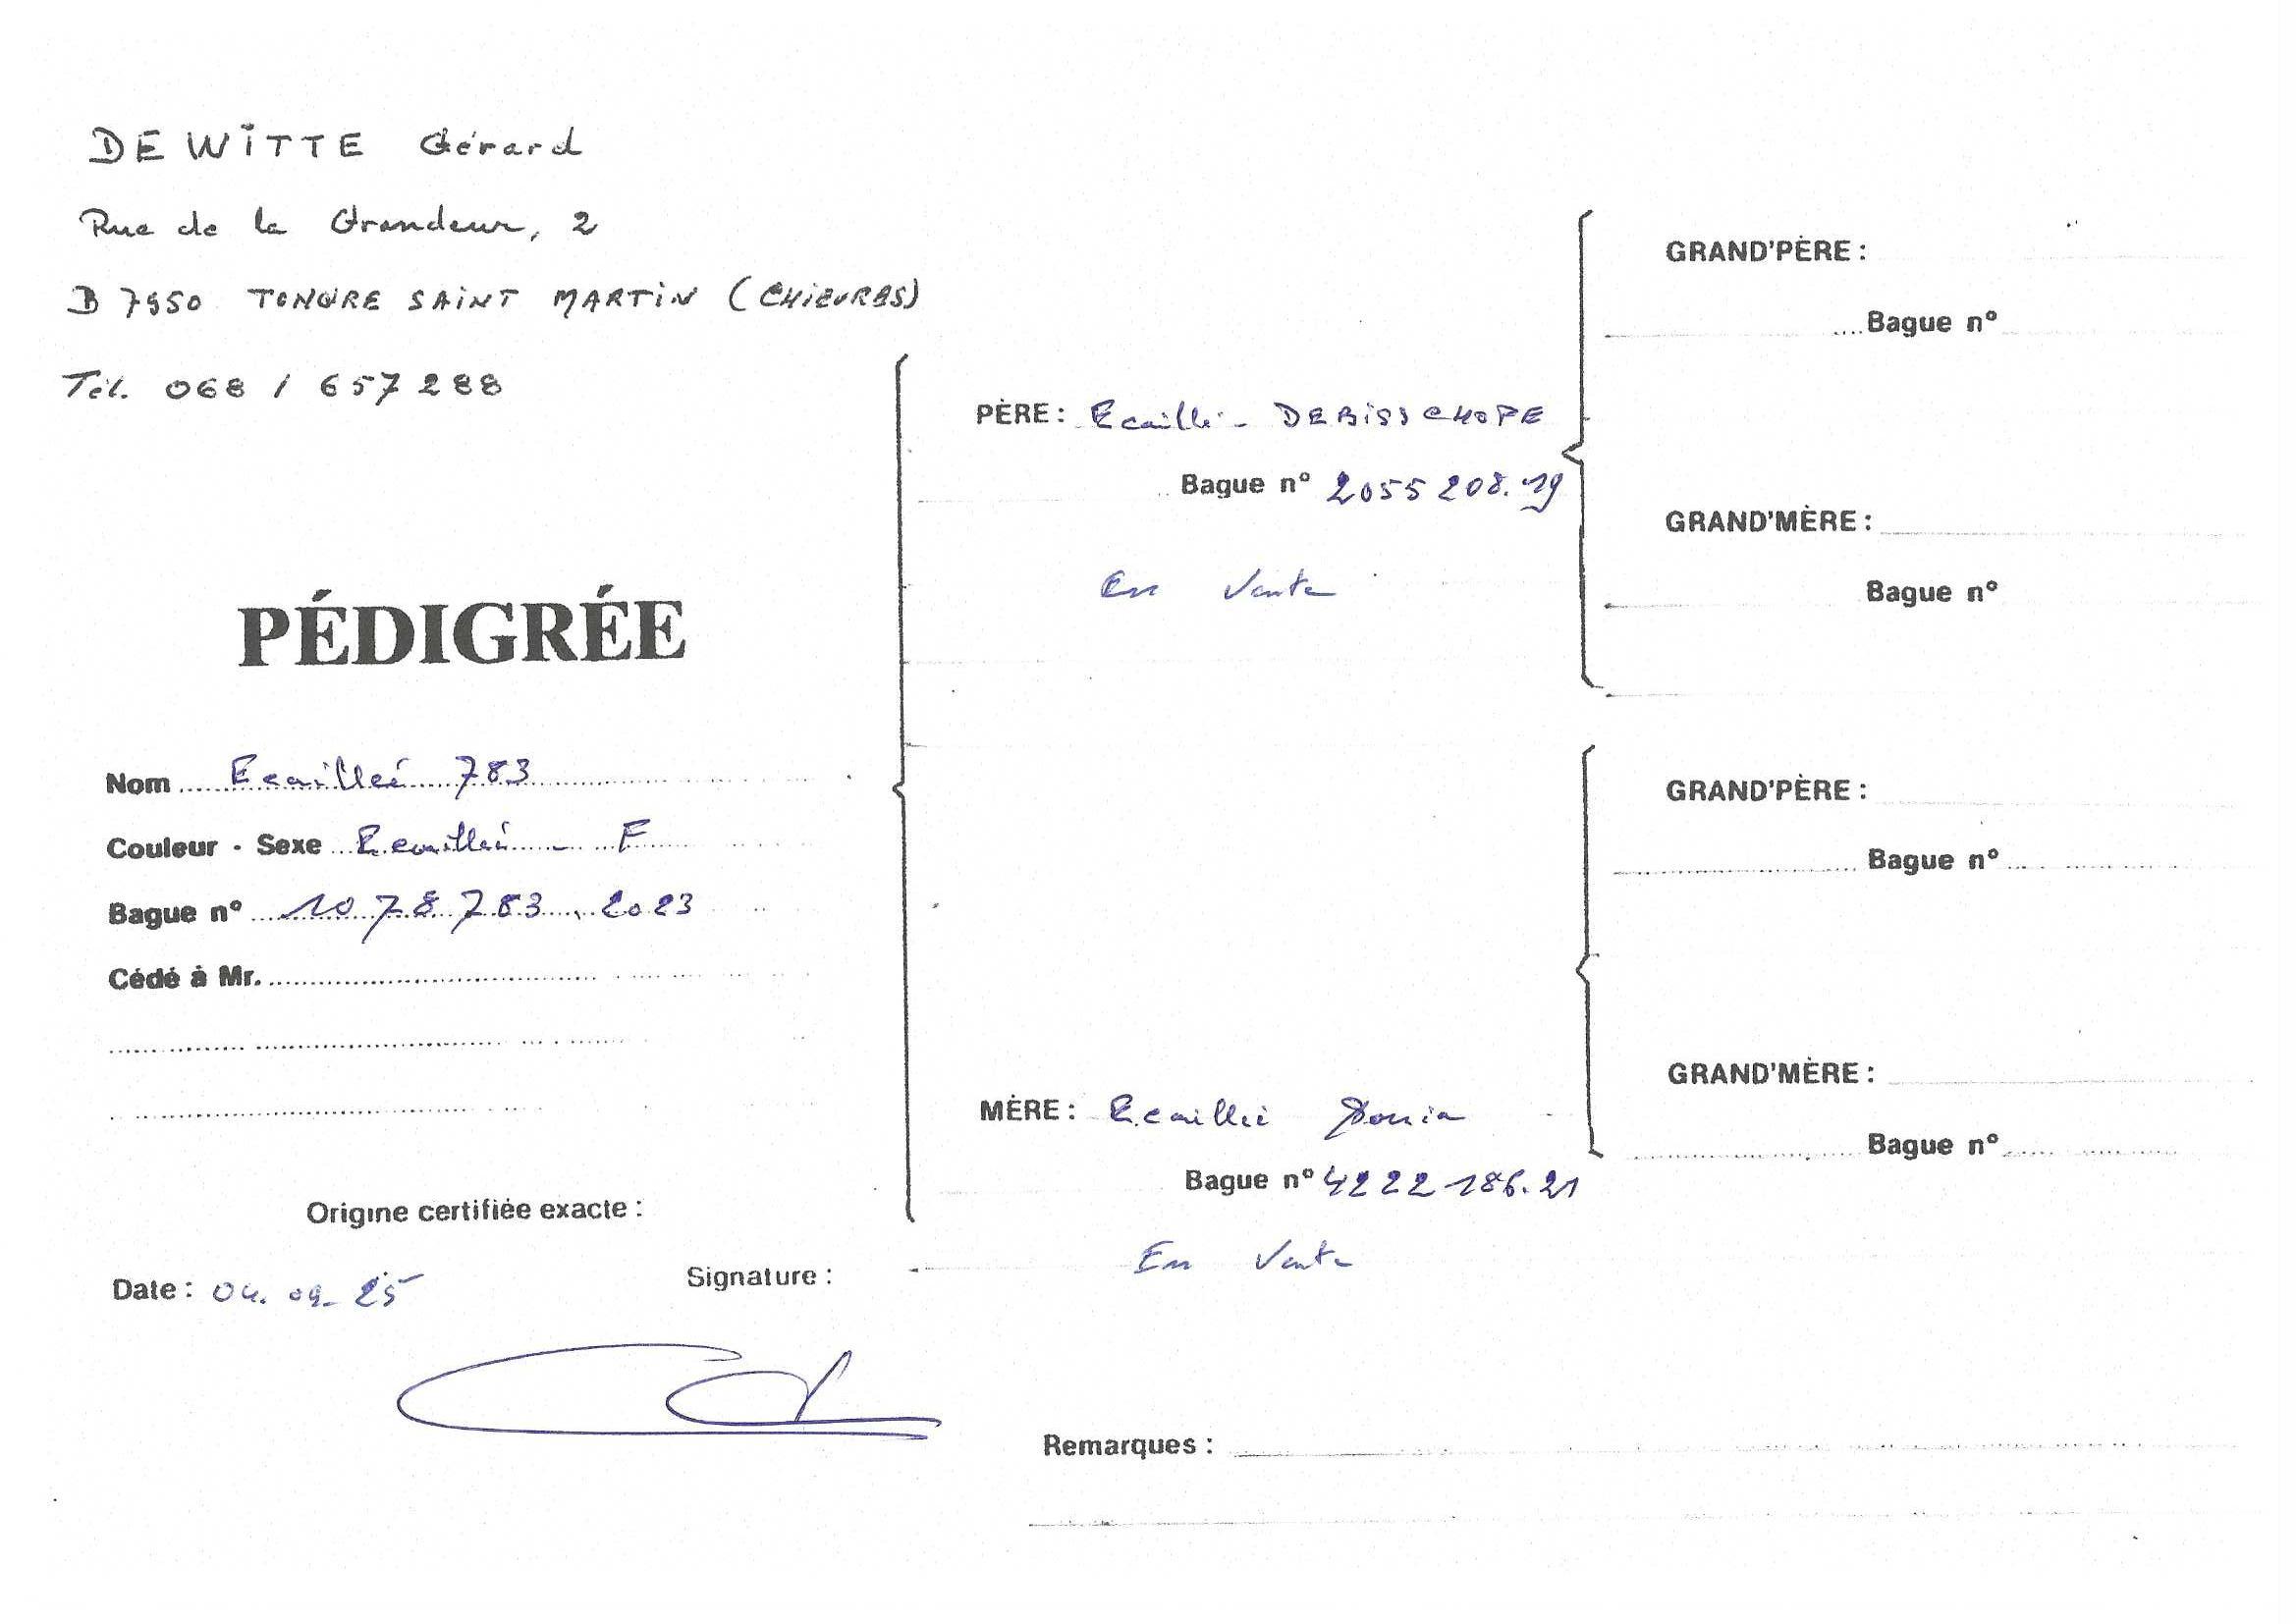 DEWITTE Gérard
Rue de la Grandeur, 2
B 7950 TONGRE SAINT MARTIN (CHIEVRES)
Tél. 068 / 657288
PÉDIGRÉE
Nom Ecaillée 783
Couleur - Sexe Ecaillée - F
Bague n° 1078783.2023
Cédé à Mr.
Origine certifiée exacte :
Date : 04.09.25
Signature :
PÈRE : Ecaillé - DEBISSCHOPE
Bague n° 2055208.19
En Vente
MÈRE : Ecaillée
Bague n° 4222186.21
En Vente
GRAND'PÈRE :
Bague n°
GRAND'MÈRE :
Bague n°
GRAND'PÈRE :
Bague n°
GRAND'MÈRE :
Bague n°
Remarques :